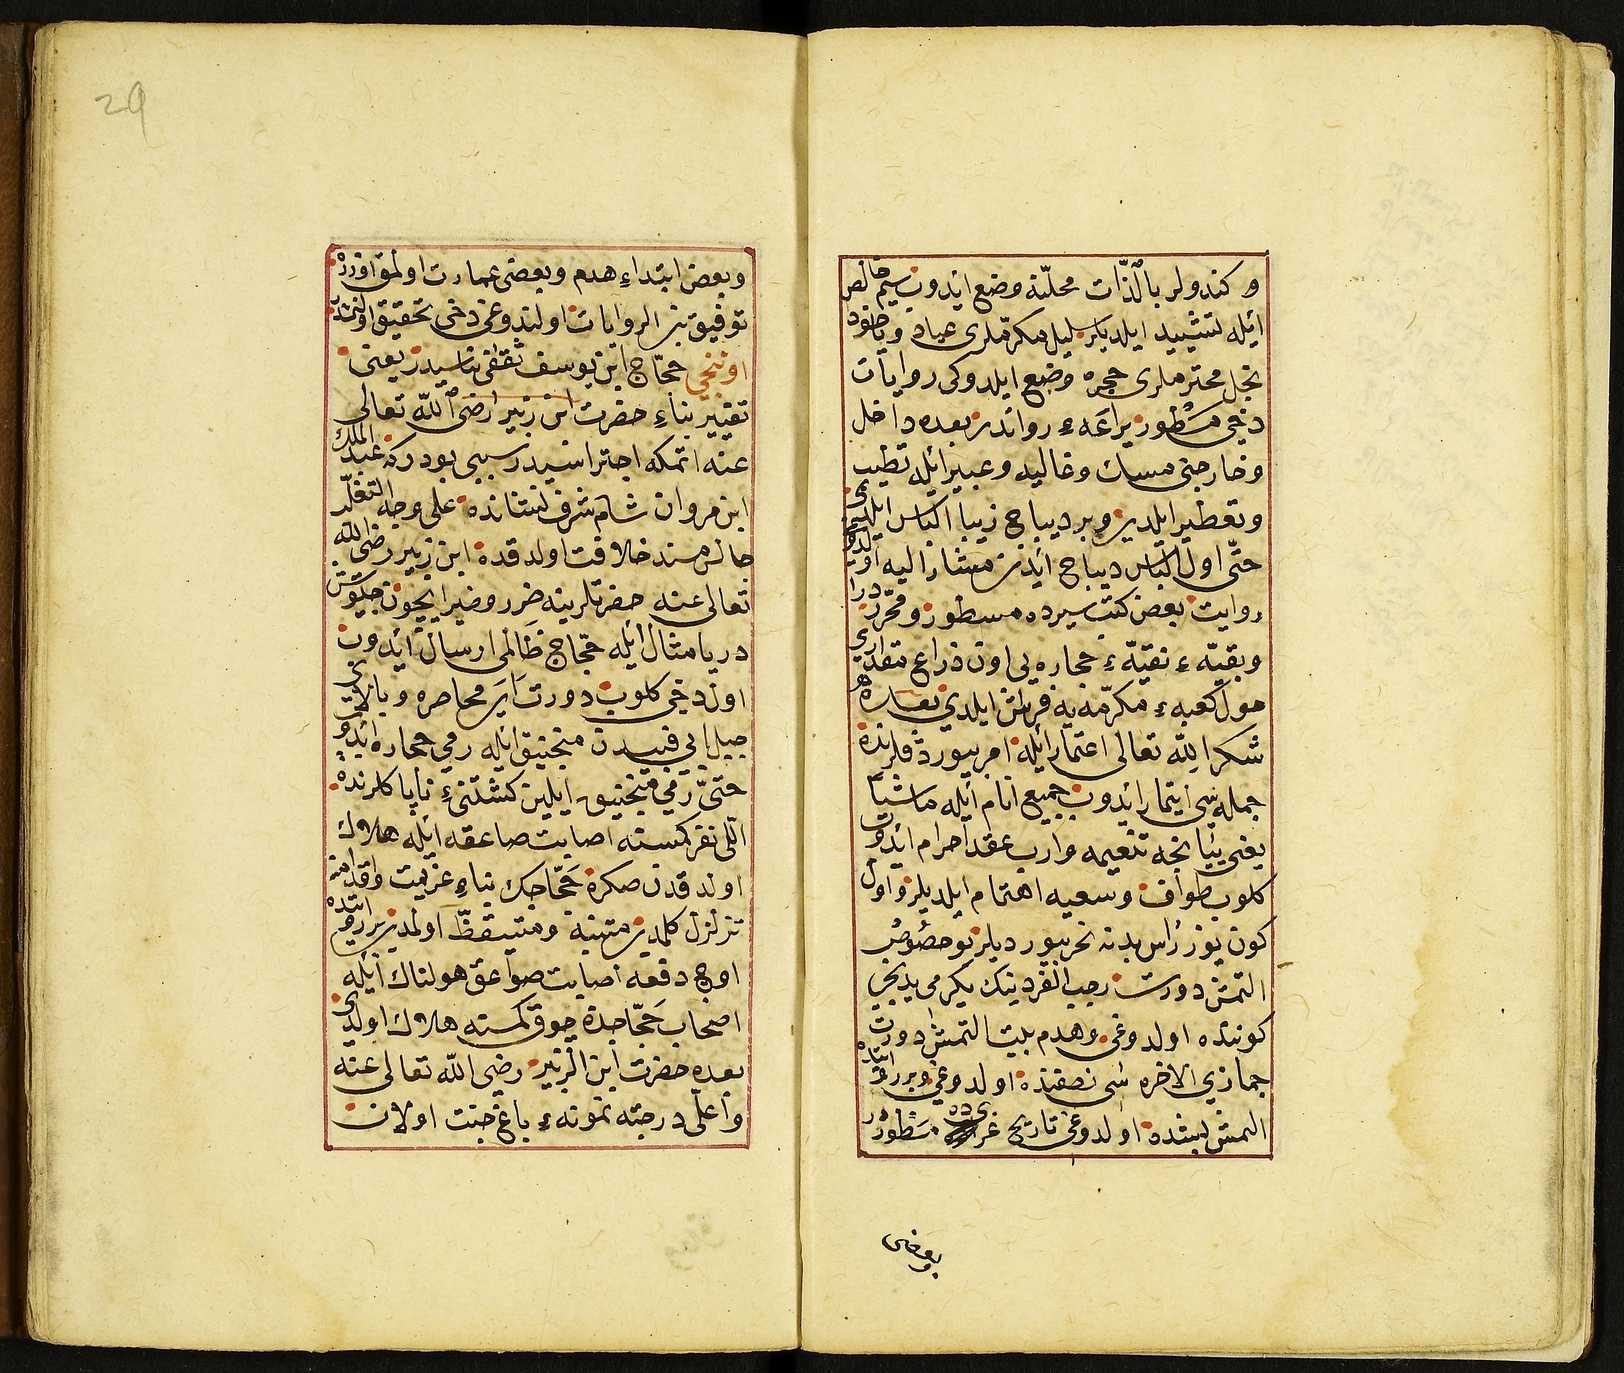 و كندولر بالذّات محلّنه وضع ايدوب سيم خالص
ايله تشييد ايلديلر ليل مكرّملرى عباد و با خود
نجل محترملرى حجره وضع ايلدوكى روايات
دخى مسطور يراعهٔ رواتدر بعده داخل
وخارجنى مسك وغاليه وعبير ايله تطييب
وتعطير ايلدى وبر ديباج زيبا اكباس ايلدى
حتّى اول اكباس ديباج ايدن مشار اليه اولدوغى
روايت بعض كتب سيرده مسطور ومحرّردر
وبقيّهٔ نقيّهٔ حجاره يى اون ذراع مقدارى
حول كعبهٔ مكرّمه يه فرش ايلدى بعده
شكرا لله تعالى اعتمار ايله امر بيوردقلرنده
جمله سى ايتمار ايدوب جميع انام ايله ماشيا
يعنى پياجه تنعيمه وارب عقد احرام ايدوب
كلوب طواف وسعيه اهتمام ايلديلر و اول
كون يوز رأس بدنه نحر بيورديلر بو خصوص
التمش دورت رجب الفردينك يكرمى يدنجى
كوننده اولدوغى وهدم بيت التمش دورت
جمازي الاخره سى نصفنده اولدوغى وبر روايتده
التمش بشده اولدوغى تاريخ غرىده مسطوردر
بعض
29
وبعض ابتداء هدم وبعضى عمارت اولمق اوزره
توفيق بين الروايات اولندوغى دخى تحقيق اولنمشدر
اوننجى حجّاج ابن يوسف ثقفى بناسيدر يعنى
تغيير بناء حضرت ابن زبير رضى الله تعالى
عنه اتمكه اجتراسيدر سببى بودركه عبد الملك
ابن مروان شام شرف نشانده على وجه التغلّب
جالس مسند خلافت اولدقده ابن زبير رضى الله
تعالى عنه حضرتلرينه ضرر وضير ايچون جيوش
دريا مثال ايله حجّاج ظالمى ارسال ايدوب
اول دخى كلوب دورت اى محاصره و بالاى
جبل ابى قبيسدن منجنيق ايله رمى حجاره ايدوب
حتّى رمى منجنيق ايلين كشتنئ ناپاكلرنده
اللى نفر كمسنه اصابت صاعقه ايله هلاك
اولدقدن صكره حجّاجك بناء عزيمت واقدامنه
تزلزل كلمدى متنبه ومتيقظّ اولمدى بر روايتده
اوچ دفعه اصابت صواعق هولناك ايله
اصحاب حجّاجدن چوق كمسنه هلاك اولدى
بعده حضرت ابن الزبير رضى الله تعالى عنه
واعلّى درجته نمونهٔ باغ جنت اولان